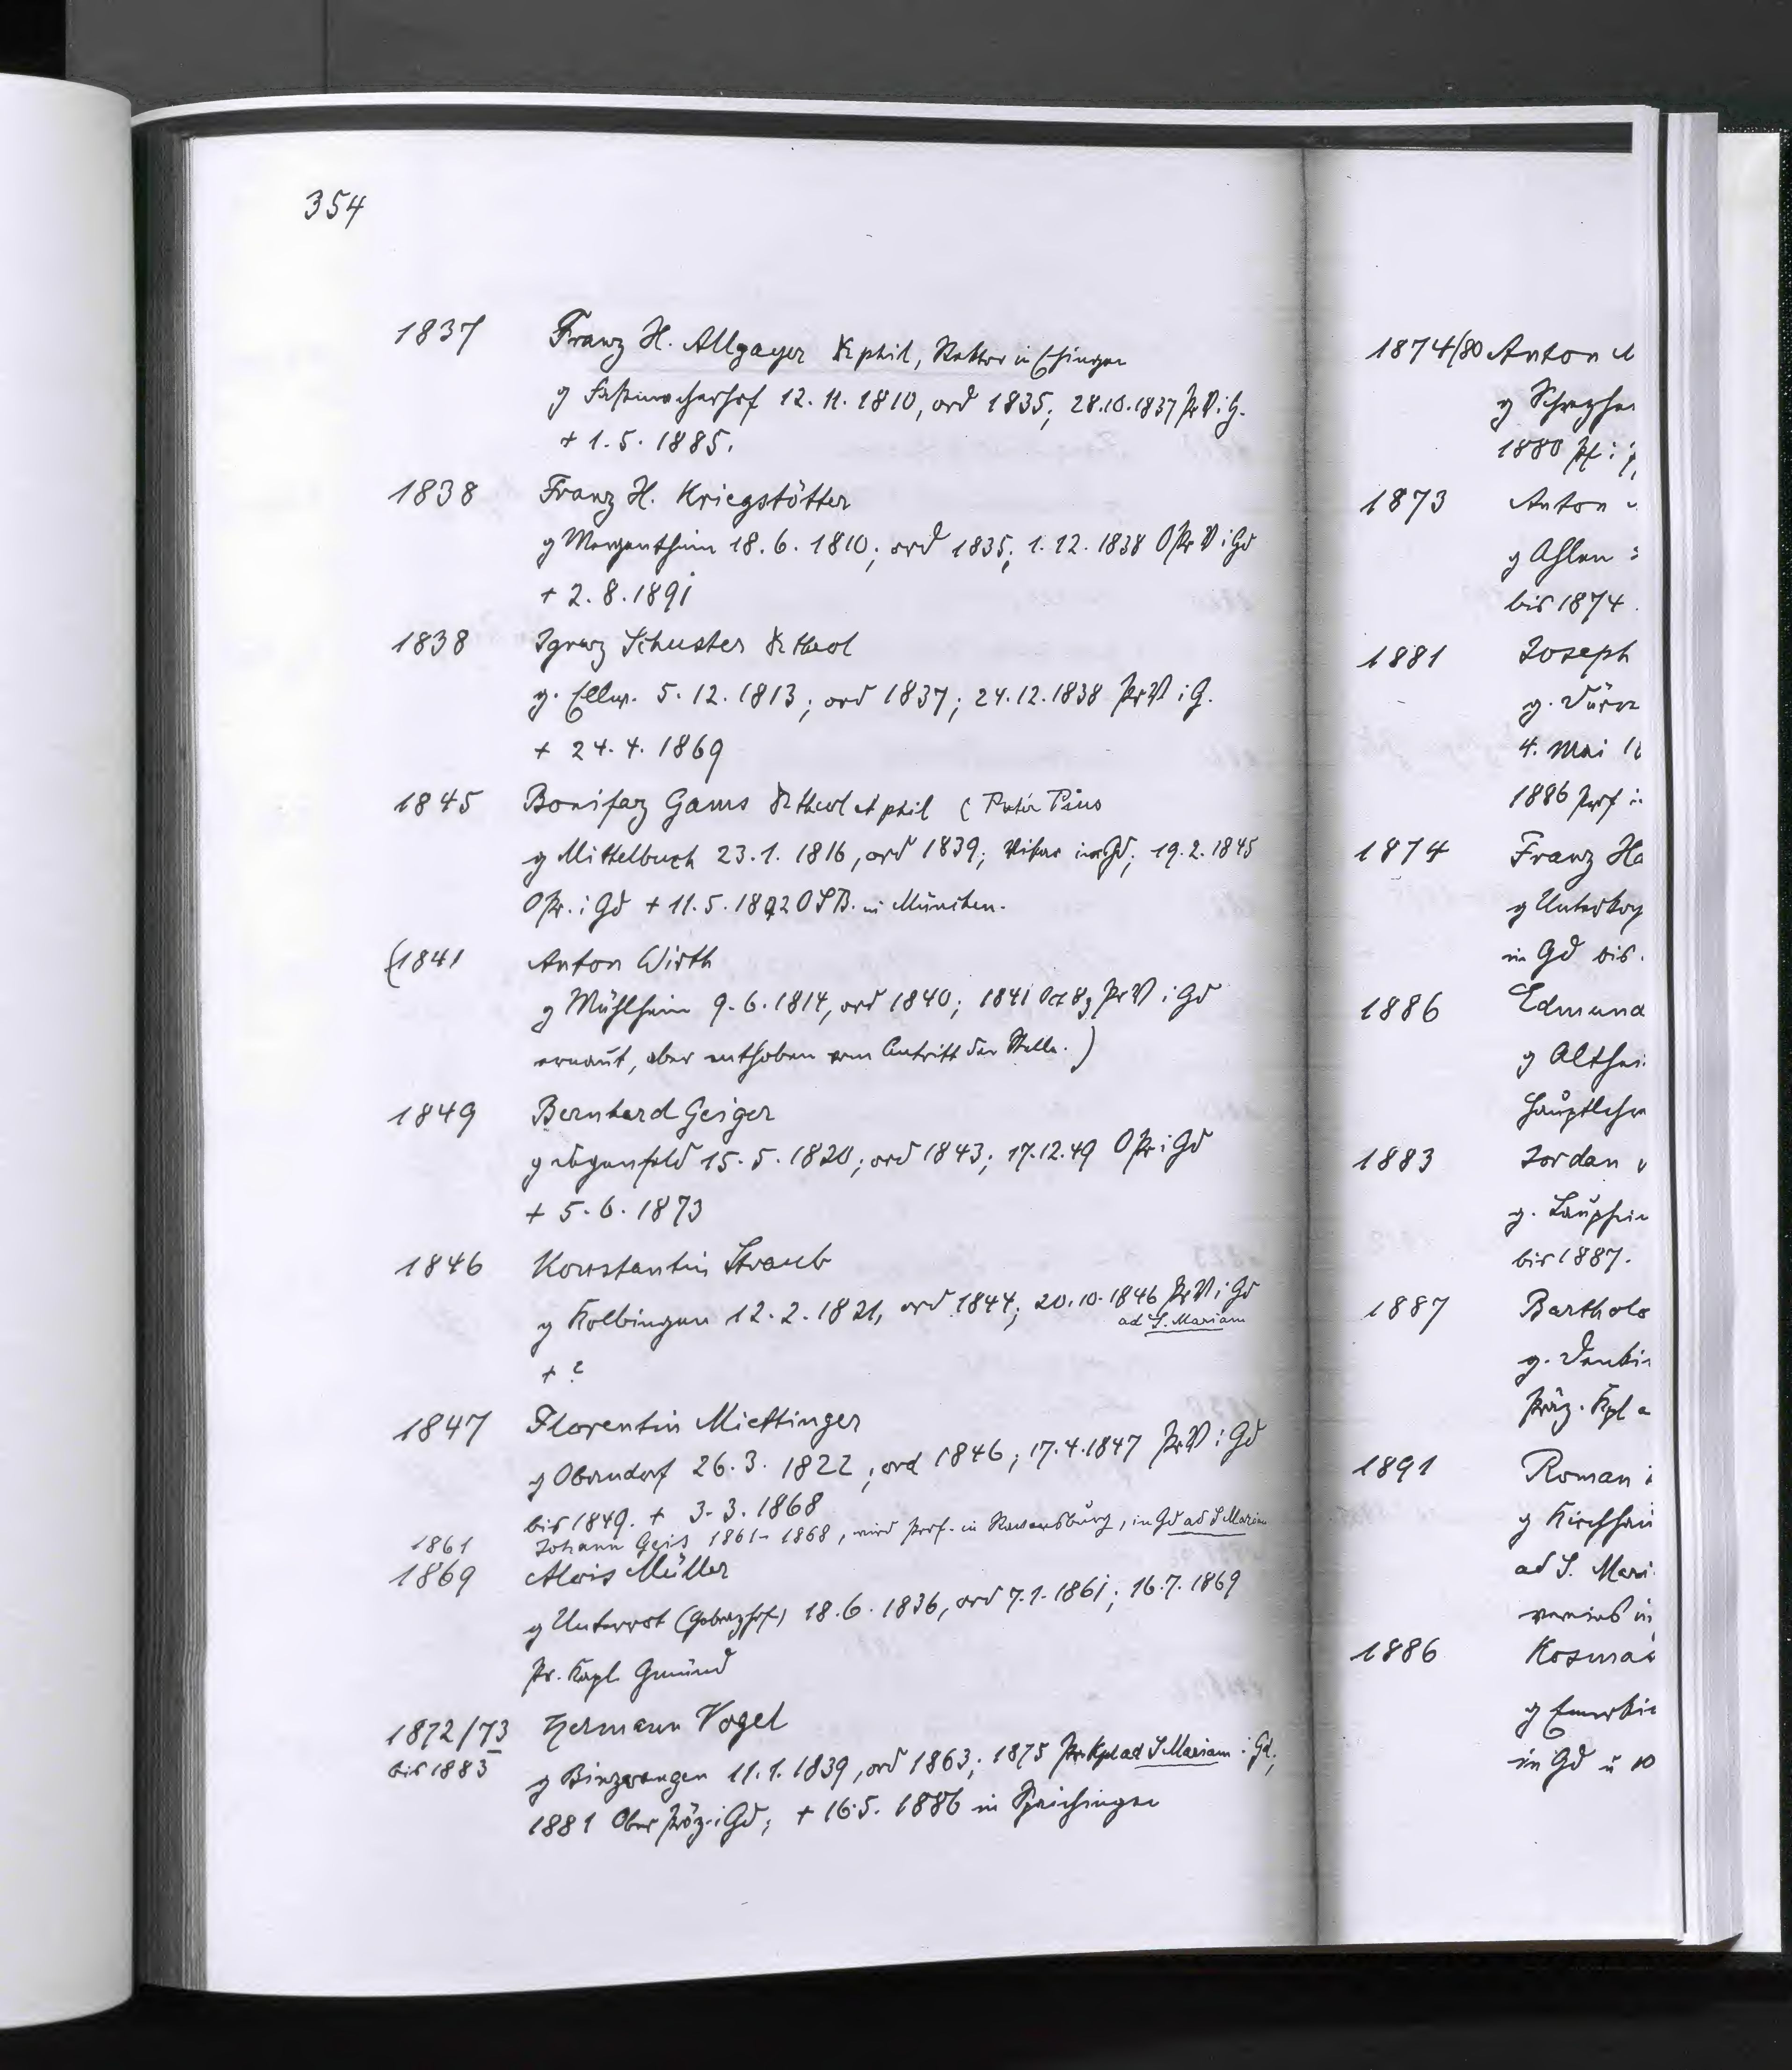 354
1837 Franz H. Allgayer Dr phil, Rektor in Ehingen
g 12. 11. 1810, ord 1835; 28.10.1837 PrV i G.
+ 1. 5. 1885.
1838 Franz H. Kriegstötter
g Mergentheim 18. 6. 1810; ord 1835; 1. 12. 1838 OPr V i Gd
+ 2. 8. 1891
1838 Ignaz Schuster Dr theol
g. Ellw. 5. 12. 1813; ord 1837; 24. 12. 1838 PrV i G.
+ 24. 4. 1869
1845 Bonifaz Gams Dr theol et phil ( Pater Pius
g Mittelbuch 23. 1. 1816, ord 1839; Vikar in Gd; 19. 2. 1845
OPr. i Gd + 11. 5. 1892 OSB. in München.
(1841 Anton Wirth
g Mühlheim 9. 6. 1814, ord 1840; 1841 Oct 8 PrV i Gd
ernant, aber enthoben vom Antritt der Stelle. )
1849 Bernhard Geiger
g 15. 5. 1820; ord 1843; 17. 12. 49 OPr i Gd
+ 5. 6. 1873
1846 Konstantin Straub
g Kolbingen 12. 2. 1821, ord 1844; 20. 10. 1846 PrV i Gd
ad S. Mariam
+ ?
1847 Florentin Miettinger
g Oberndorf 26. 3. 1822; ord 1846; 17. 4. 1847 PrV i Gd
bis 1849. + 3. 3. 1868
1861 Johann Geis 1861- 1868, wird Prof. in Ravensburg, in Gd ad S Mariam
1869 Alois Müller
g Unterrot 18. 6. 1836, ord 7. 1. 1861; 16. 7. 1869
Pr. Kapl. Gmünd
1872/73 Hermann Vogel
bis 1883 g Binzwangen 11. 1. 1839, ord 1863; 1875 Pr Kpl ad S Mariam i Gd;
1881 Ober Präz. i Gd; + 16. 5. 1886 in Spaichingen
1874/80 Anton
g
1880 Pf i
1873 Anton
g Ahlen
bis 1874.
1881 Joseph
g. Dürr
4. Mai
1886 Prof i
1874 Franz Ha
g Unterkoy
in Gd bis
1886 Edmund
g Althei
Hauptlehr
1883 Jordan
g. Lauphei
bis 1887.
1887 Bartholo
g. Denki
Präz. Kpl
1891 Roman
g Kirchhei
ad S. Mari
vereins in
1886 Kosmas
g Emerki
in Gd u